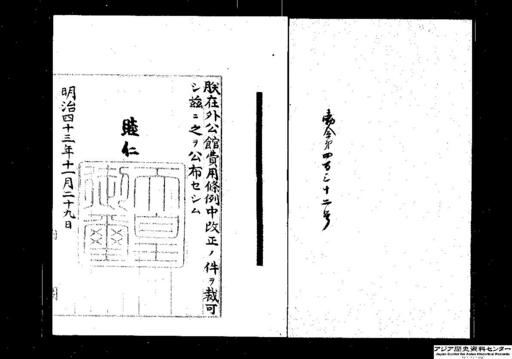 勅令第四百三十二号
朕在外公館費用條例中改正ノ件ヲ裁可
シ茲ニ之ヲ公布セシム
睦仁
天皇御璽
明治四十三年十一月二十九日
アジア歴史資料センター
Japan Center for Asian Historical Records